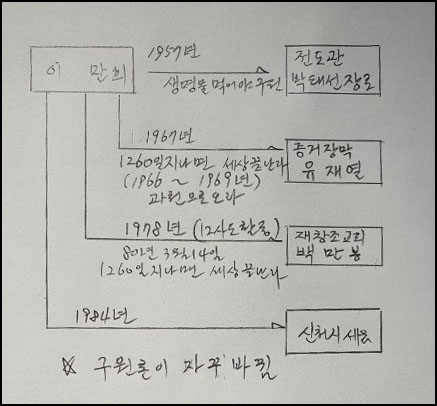 이 만희
1957년
생명물 먹어야 구원
전도관
박태선장로
1967년
1260일지나면 세상끝난다
(1966 ~ 1969년)
과천으로 오라
증거장막
유 재열
1978년 (12사도활동)
80년 3월14일
1260일 지나면 세상 끝난다
재창조교회
백 만 봉
1984년
신천지 세움
※ 구원론이 자꾸 바뀜